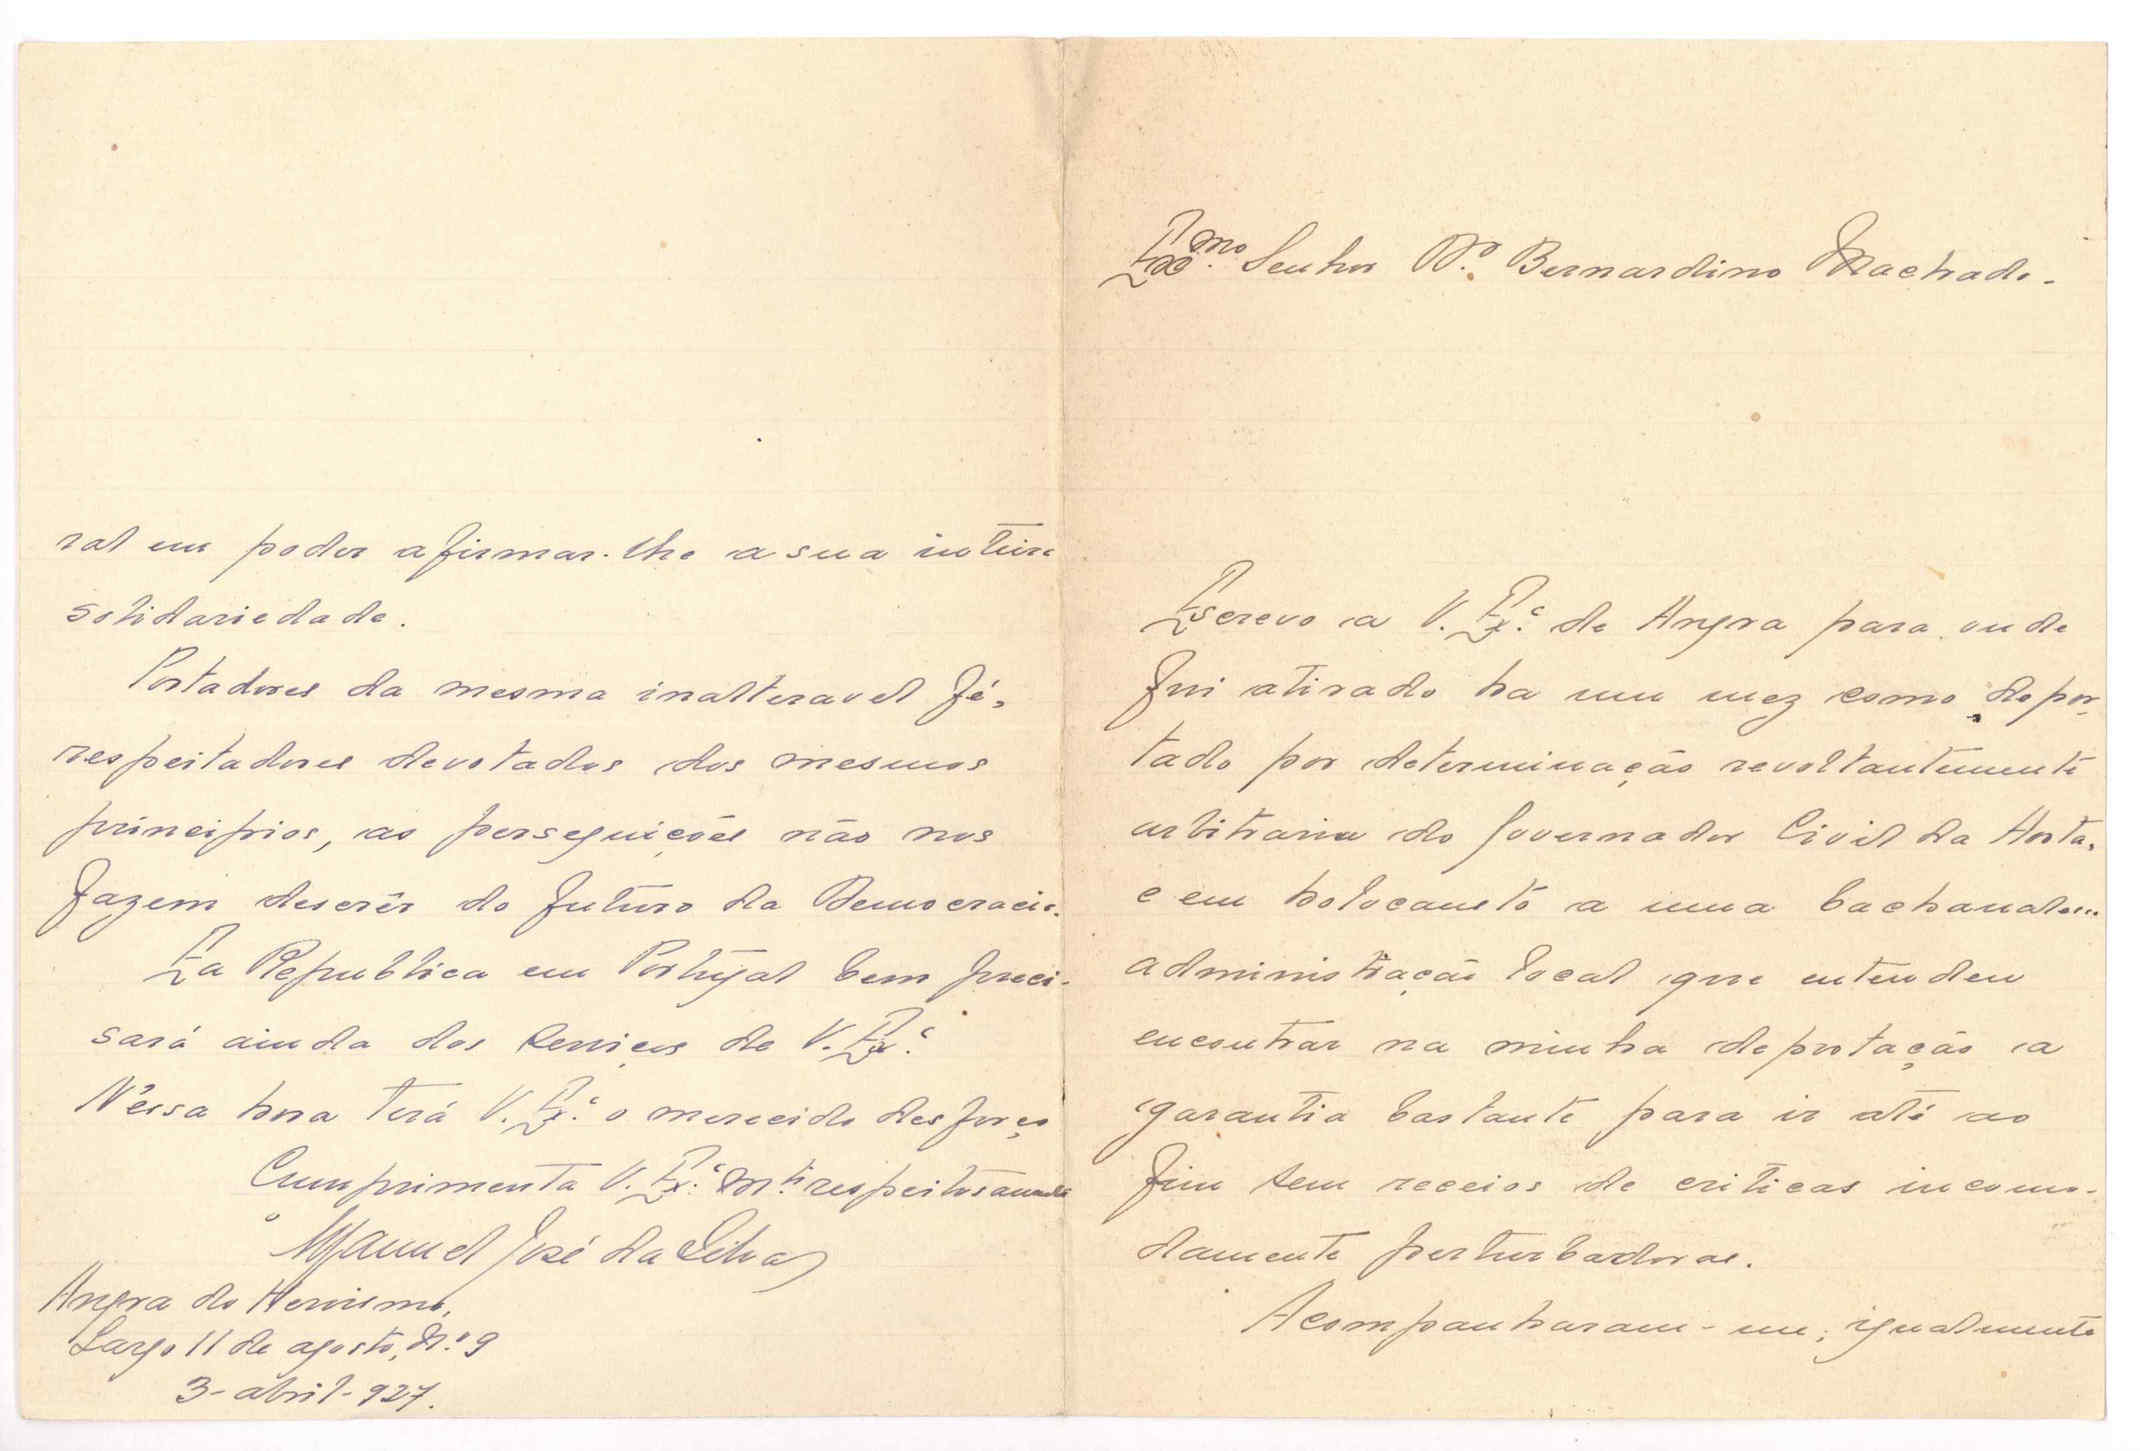 Exmo. Senhor Dr. Bernardino Machado.
Escrevo a V. Exa. de Angra para onde
fui atirado ha um mez como depor-
tado por determinação revoltantemente
arbitraria do Governador Civil da Horta,
e em holocausto a uma bachanal...
administração local que entendeu
encontrar na minha deportação a
garantia bastante para ir até ao
fim sem receios de criticas incomo-
damente perturbadoras.
Acompanharam-me, igualmente
ral em poder afirmar-lhe a sua inteira
solidariedade.
Portadores da mesma inalteravel fé,
respeitadores devotados dos mesmos
principios, as perseguições não nos
fazem descrêr do futuro da Democracia.
Ea Republica em Portugal bem preci-
sará ainda dos serviços de V. Exa.
N'essa hora terá V. Exa. o merecido desforço
Cumprimenta V. Exa. Mto. respeitosamente
Manuel José da Silva
Angra do Heroismo,
Largo 11 de agosto, N.º 9
3-abril-927.